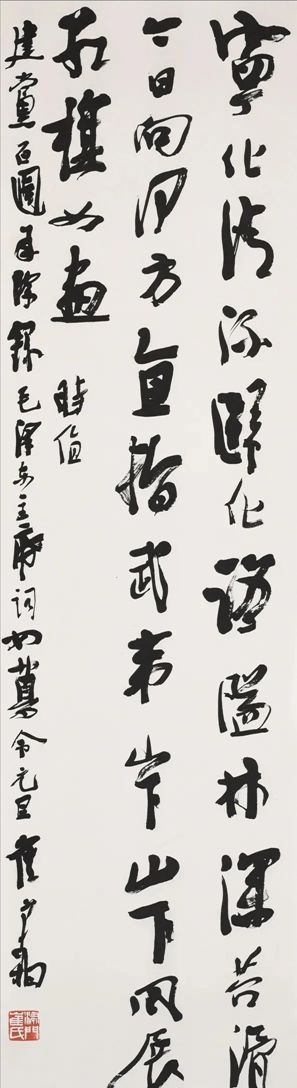 寧化清流歸化路隘林深苔滑
今日向何方直指武夷山下山下風展
紅旗如畫 時值
建黨百周年際錄毛澤东主席词如夢令元旦 崔